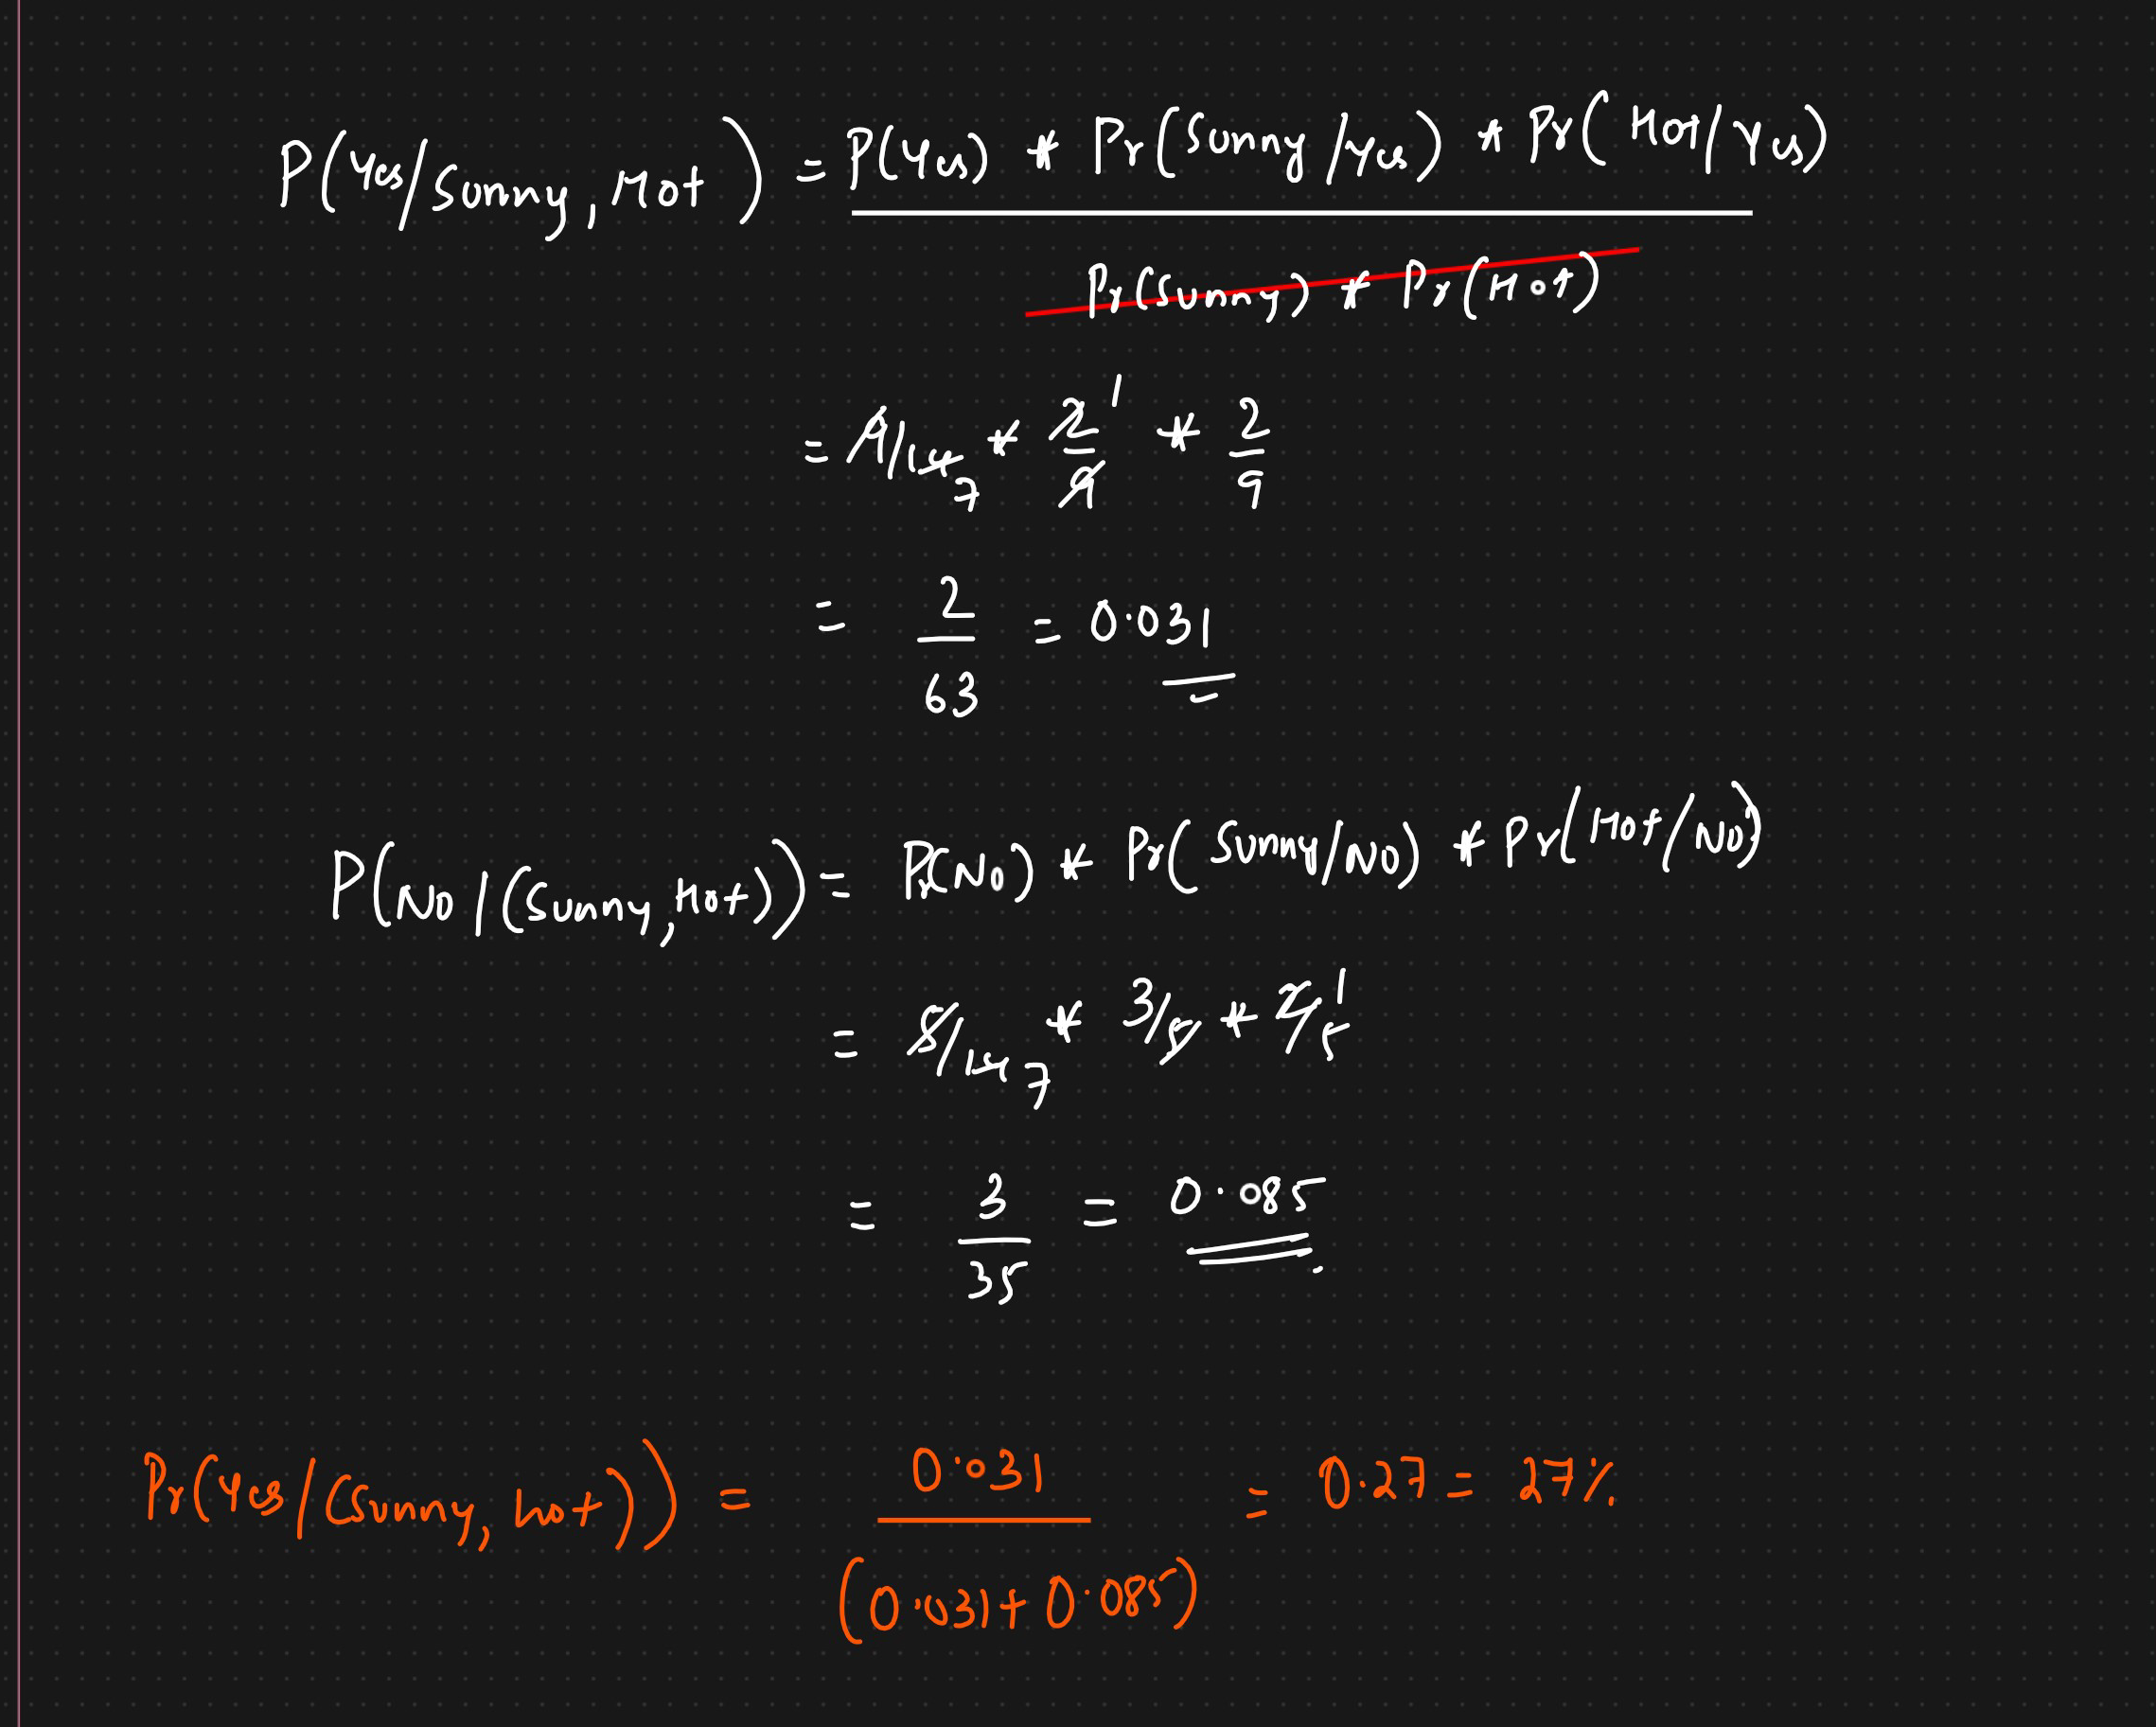 P(Yes/Sunny, Hot) = P(Yes) * Pr(Sunny/Yes) * Pr(Hot/Yes)
Pr(Sunny) * Pr(Hot)
= 9/14 7 * 2/9 1 * 2/9
= 2/63 = 0.031
P(No/(Sunny, Hot)) = Pr(No) * Pr(Sunny/No) * Pr(Hot/No)
= 5/14 7 * 3/5 * 2/5 1
= 3/35 = 0.085
Pr(Yes/(Sunny, hot)) = 0.031 / (0.031 + 0.085) = 0.27 = 27%